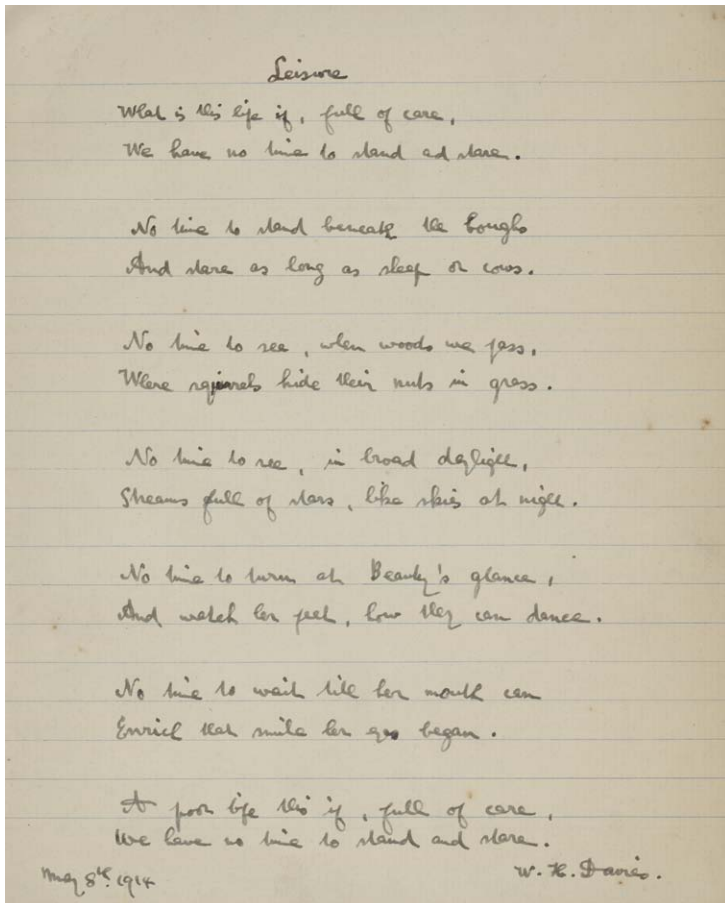 Leisure
What is this life if, full of care,
We have no time to stand ad stare.
No time to stand beneath the boughs
And stare as long as sheep or cows.
No time to see, when woods we pass,
Where squirrels hide their nuts in grass.
No time to see, in broad daylight,
Streams full of stars, like skies at night.
No time to turn at Beauty's glance,
And watch her feet, how they can dance.
No time to wait till her mouth can
Enrich that smile her eyes began.
A poor life this if, full of care,
We have no time to stand and stare.
May 8th. 1914
W. H. Davies.